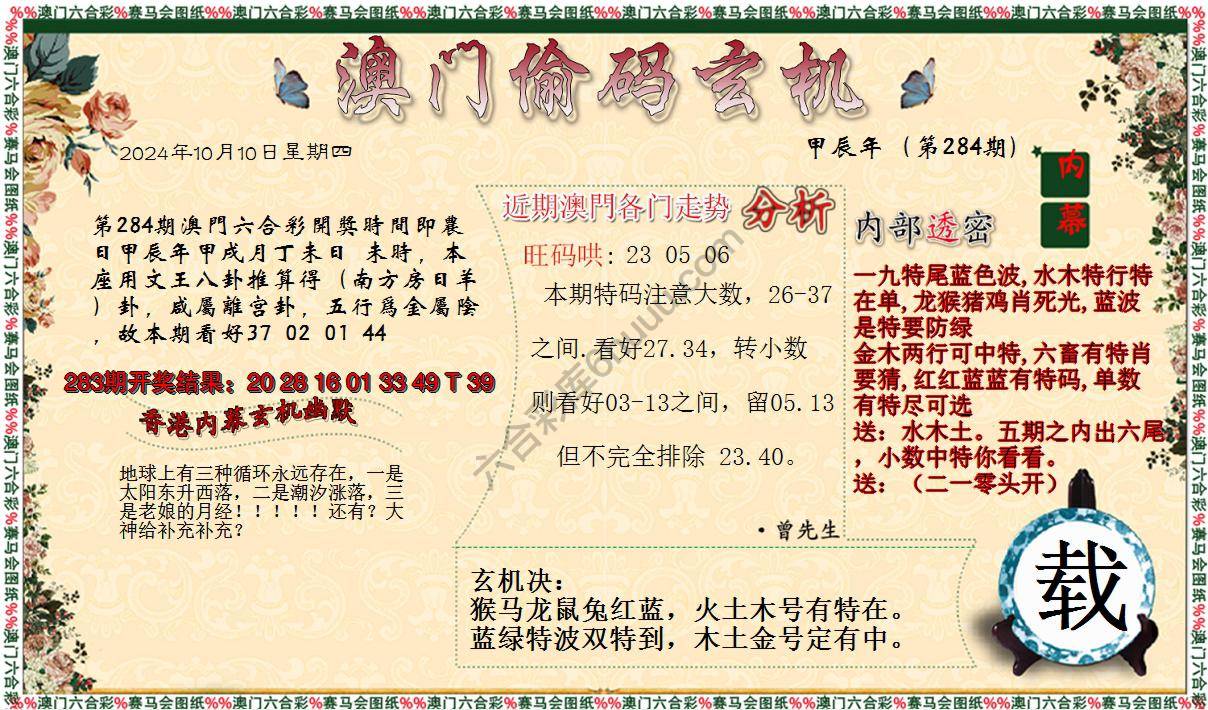 %%澳门六合彩%赛马会图纸%%澳门六合彩%赛马会图纸%%澳门六合彩%赛马会图纸%%澳门六合彩%赛马会图纸%%澳门六合彩%赛马会图纸%%澳门六合彩%赛马会图纸%%
澳门偷码玄机
2024年10月10日星期四
甲辰年（第284期）
第284期澳門六合彩開獎時間即農
日甲辰年甲戌月丁未日 未時，本
座用文王八卦推算得（南方房日羊
）卦，咸屬離宫卦，五行爲金屬陰
，故本期看好37 02 01 44
283期开奖结果：20 28 16 01 33 49 T 39
香港内幕玄机幽默
地球上有三种循环永远存在，一是
太阳东升西落，二是潮汐涨落，三
是老娘的月经！！！！！还有？大
神给补充补充？
近期澳門各门走势 分析
旺码哄: 23 05 06
本期特码注意大数，26-37
之间.看好27.34，转小数
则看好03-13之间，留05.13
但不完全排除 23.40。
·曾先生
玄机决：
猴马龙鼠兔红蓝，火土木号有特在。
蓝绿特波双特到，木土金号定有中。
内幕
内部透密
一九特尾蓝色波,水木特行特
在单,龙猴猪鸡肖死光,蓝波
是特要防绿
金木两行可中特,六畜有特肖
要猜,红红蓝蓝有特码,单数
有特尽可选
送：水木土。五期之内出六尾
，小数中特你看看。
送：（二一零头开）
载
%%澳门六合彩%赛马会图纸%%澳门六合彩%赛马会图纸%%澳门六合彩%赛马会图纸%%澳门六合彩%赛马会图纸%%澳门六合彩%赛马会图纸%%澳门六合彩%赛马会图纸%%